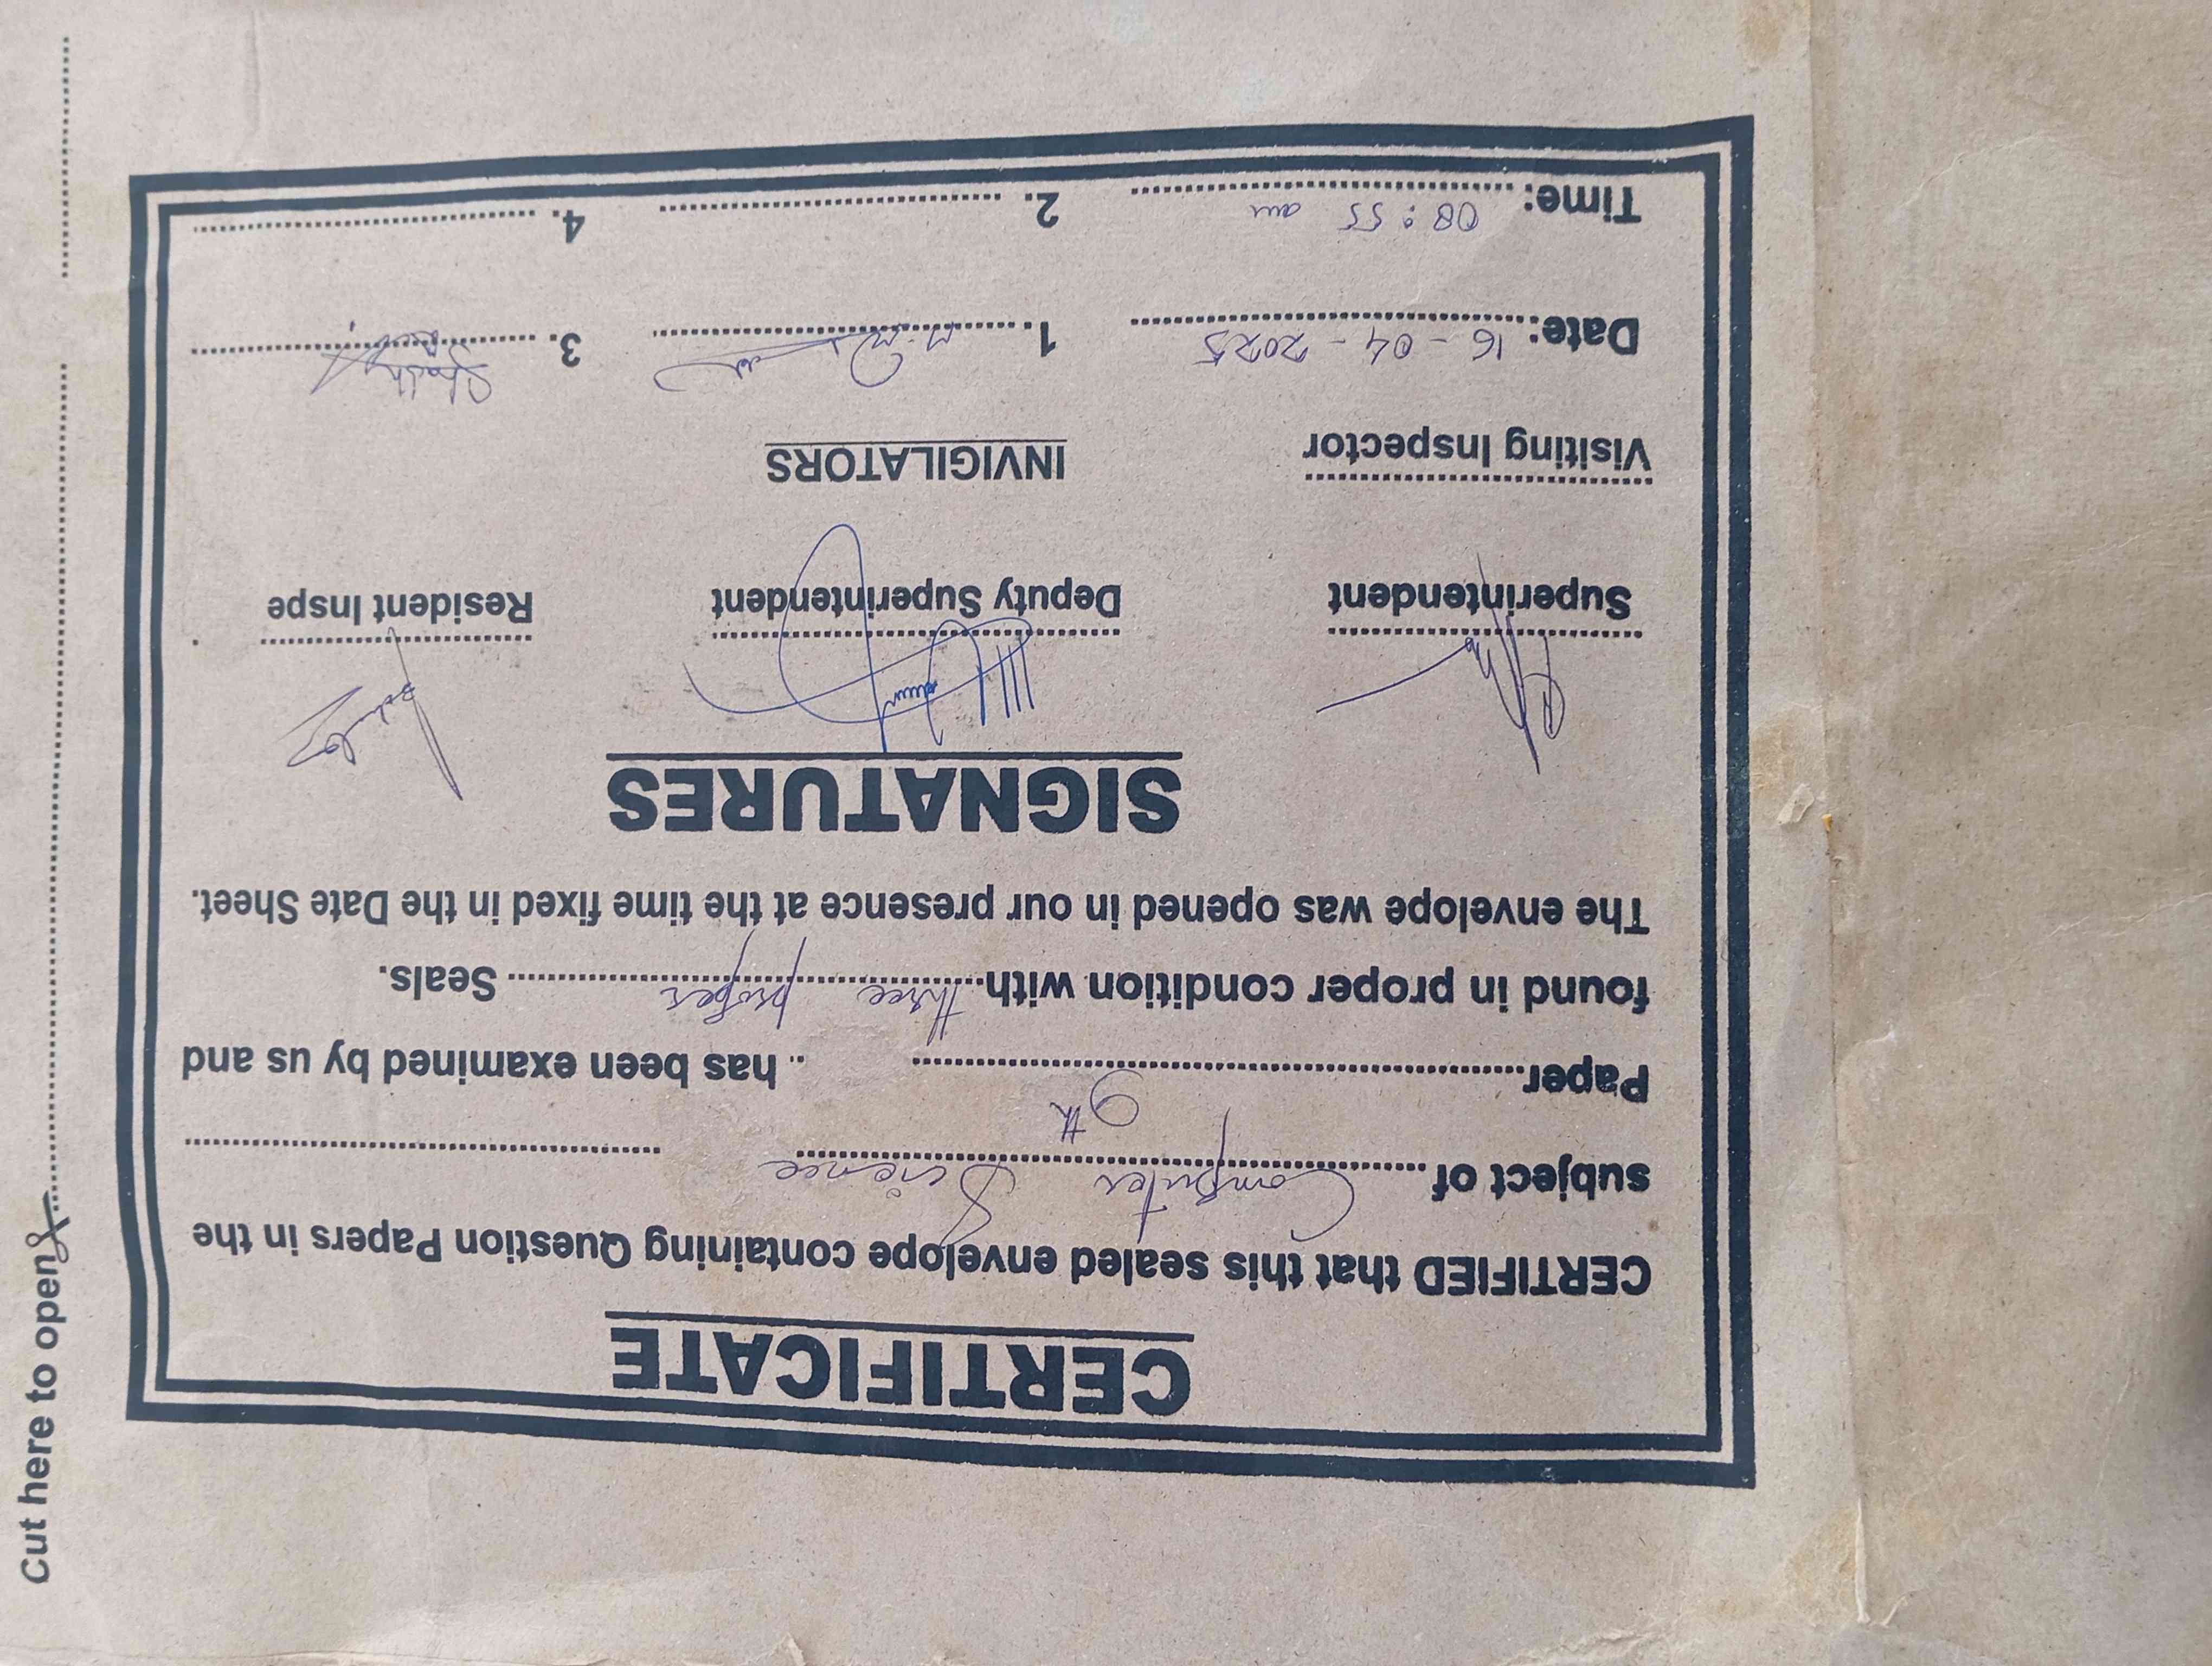 CERTIFICATE
CERTIFIED that this sealed envelope containing Question Papers in the
subject of Computer Science
Paper 9th has been examined by us and
found in proper condition with three proper Seals.
The envelope was opened in our presence at the time fixed in the Date Sheet.
SIGNATURES
Superintendent Deputy Superintendent Resident Inspe
Visiting Inspector INVIGILATORS
Date: 16-04-2025 1. 3.
Time: 08:55 am 2. 4.
Cut here to open